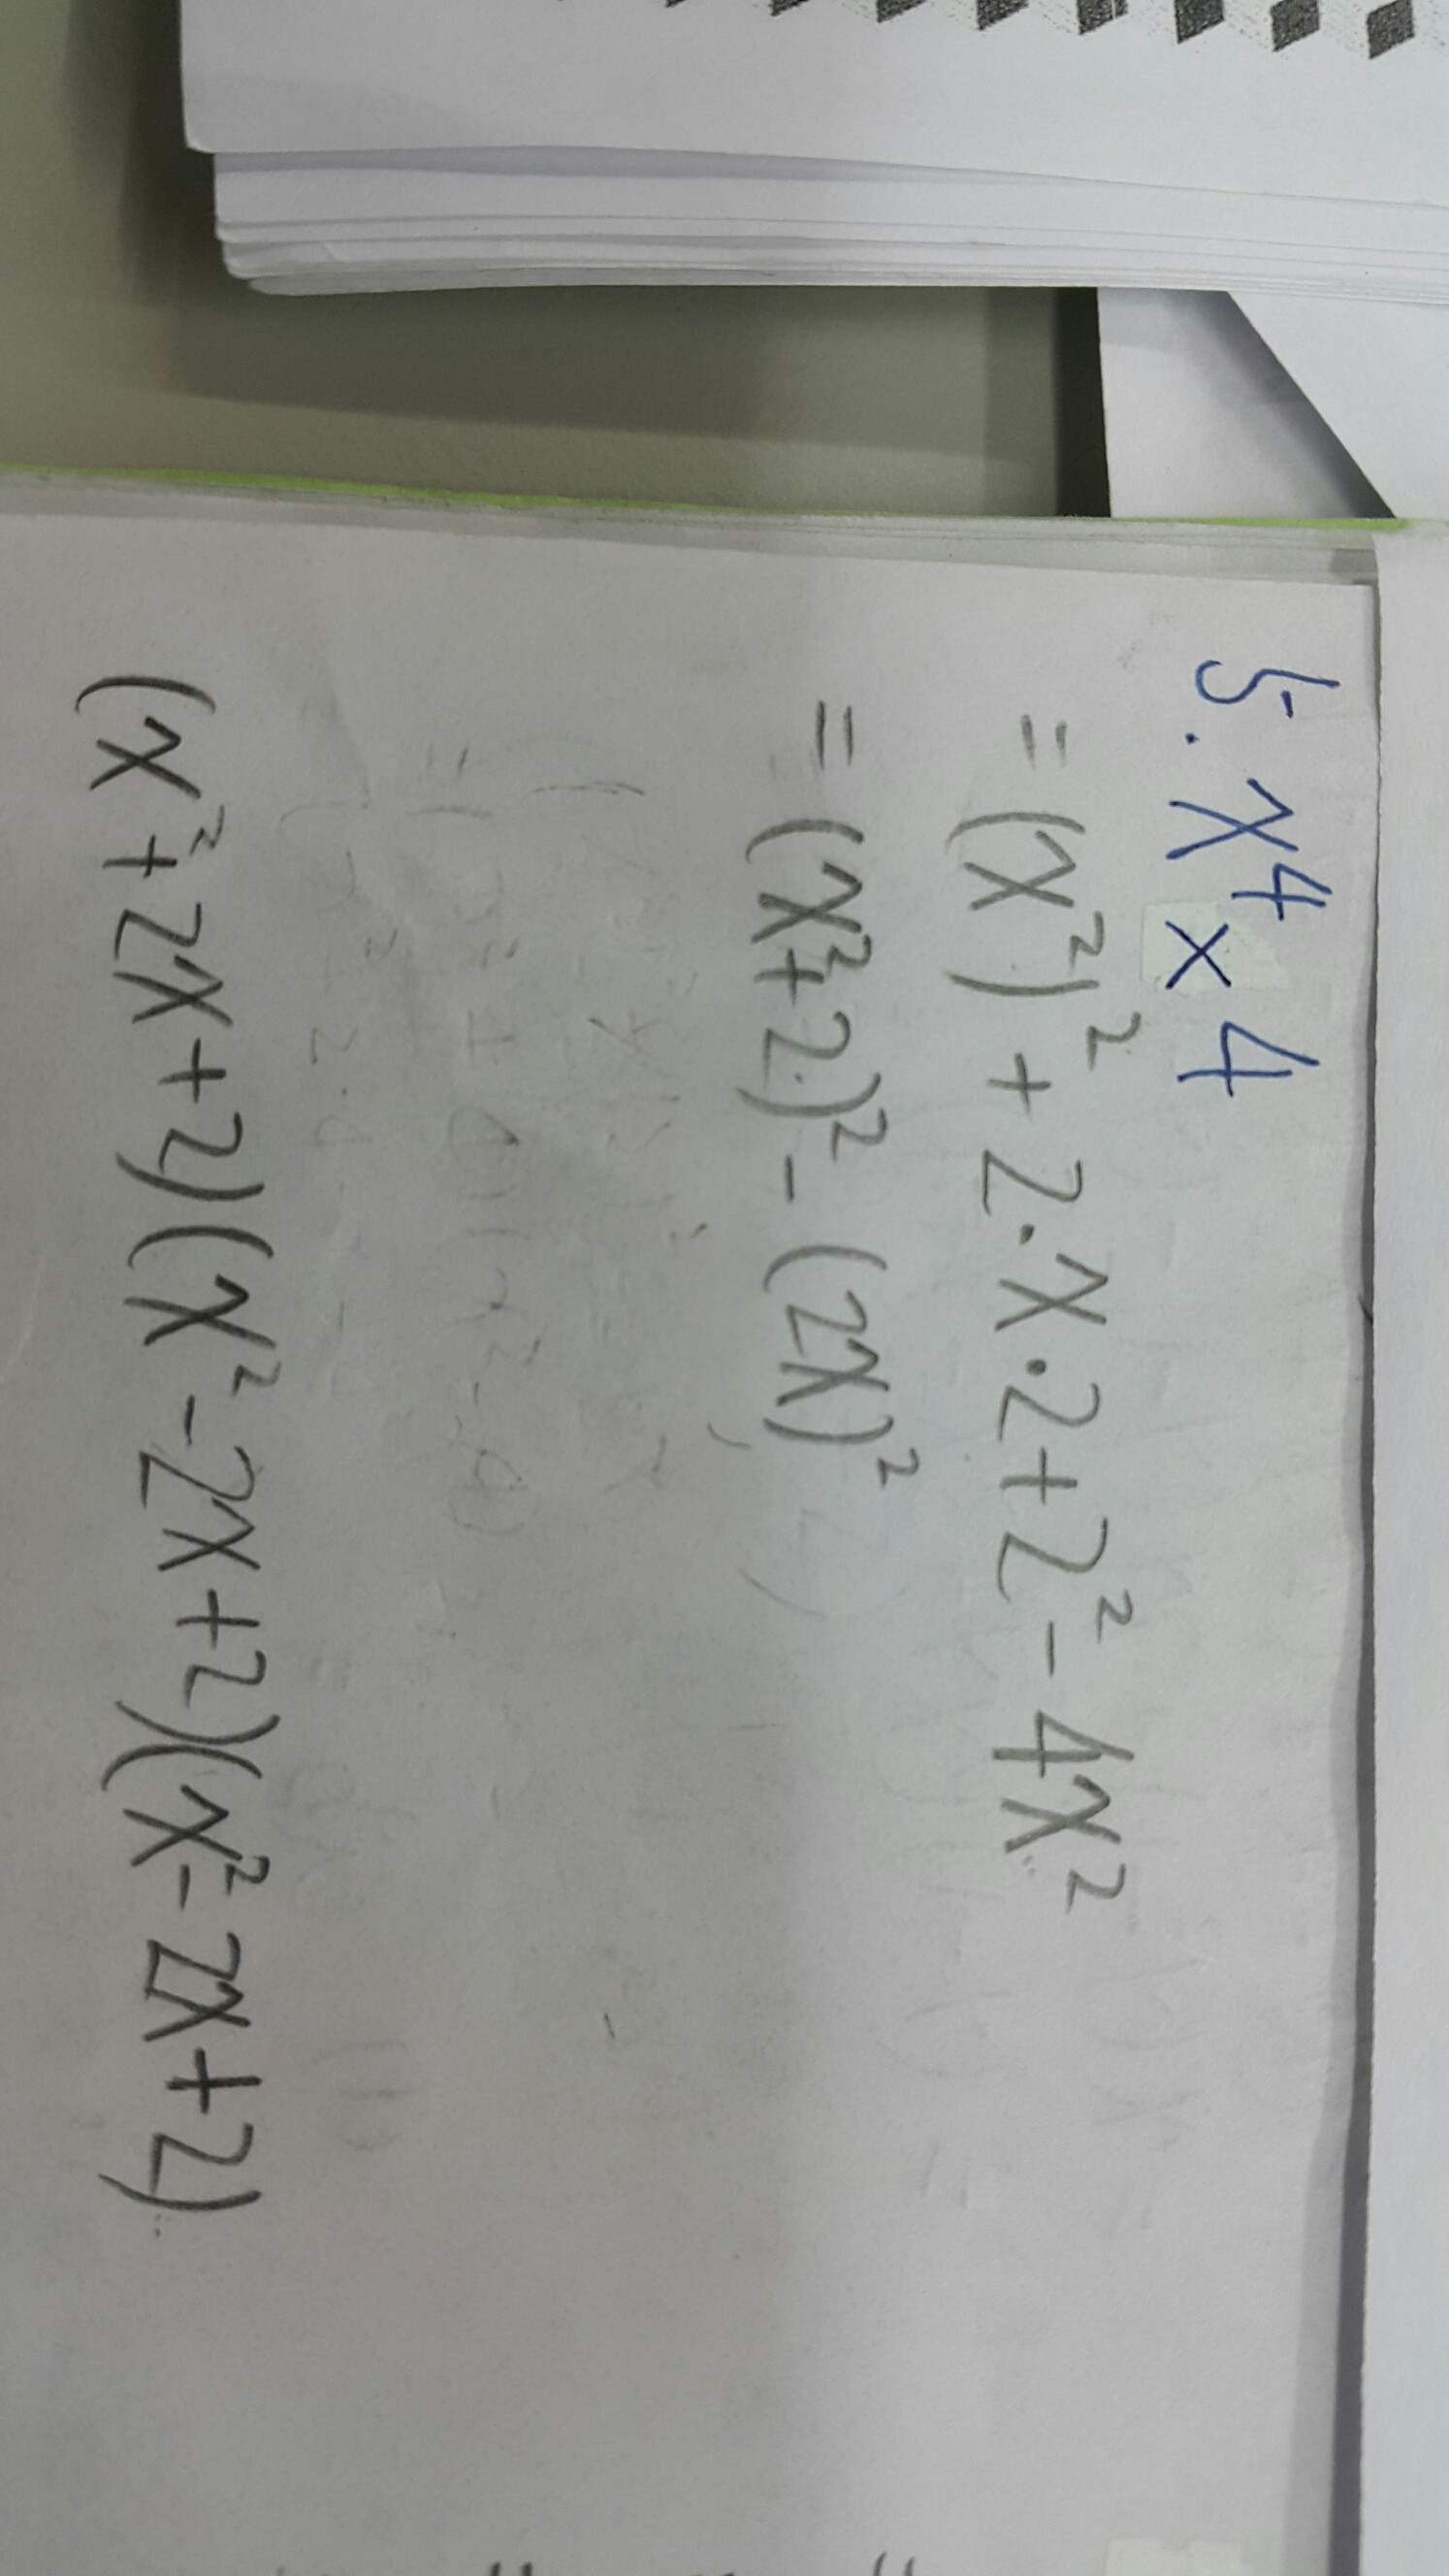 5. x⁴ × 4
= (x²)² + 2·x·2+2² - 4x²
= (x²+2)² - (2x)²
(x²+2x+2)(x²-2x+2)(x²-2x+2)